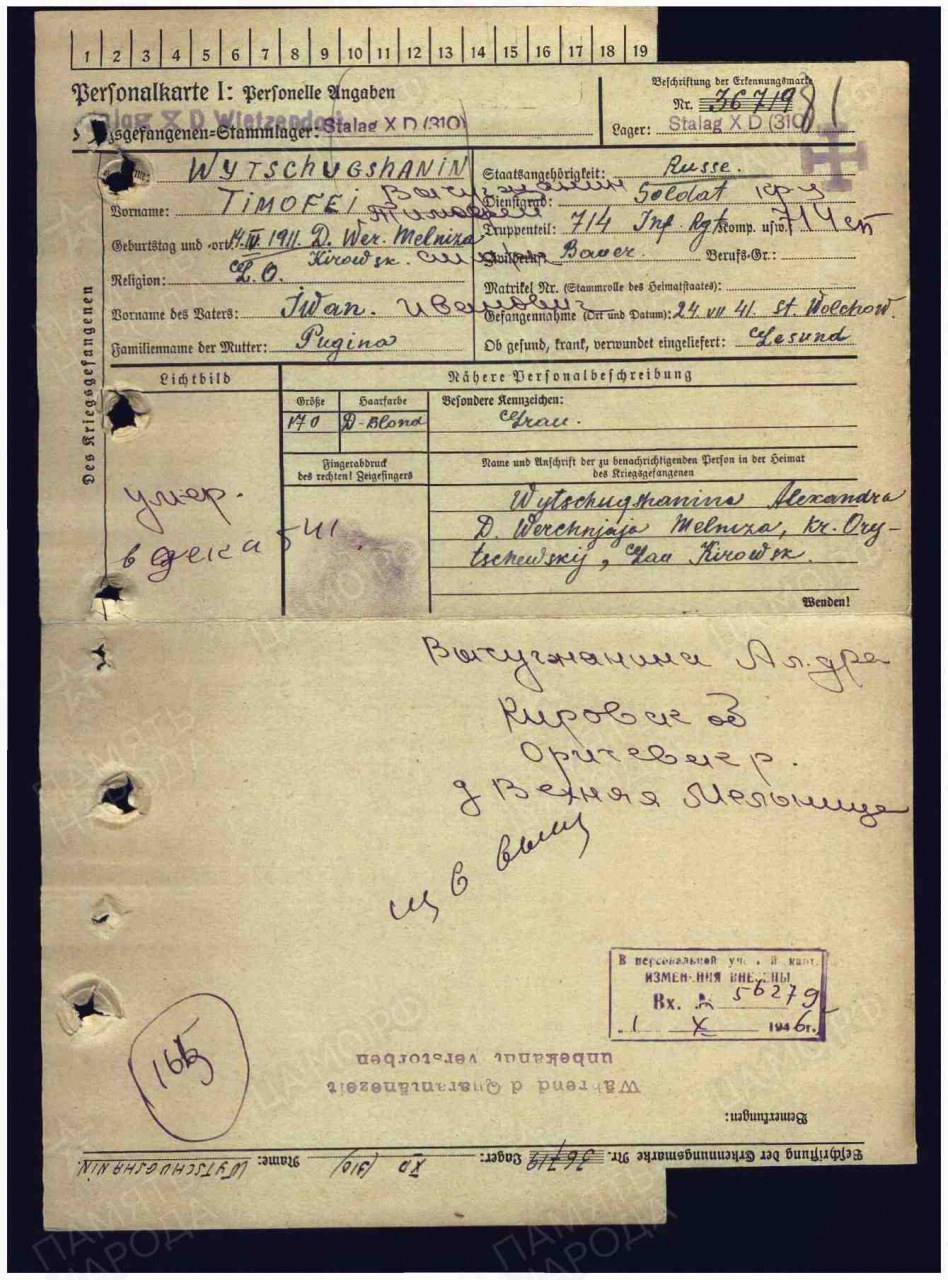 1 2 3 4 5 6 7 8 9 10 11 12 13 14 15 16 17 18 19
Personalkarte I: Personelle Angaben
Beschriftung der Erkennungsmarke
Nr. 36719
81
Stalag X D Wietzendorf
Kriegsgefangenen-Stammlager: Stalag X D (310)
Lager: Stalag X D (310)
Des Kriegsgefangenen
WYTSCHUGSHANIN
Staatsangehörigkeit: Russe.
Вычугжанин
Vorname: TIMOFEI
Тимофей
Dienstgrad: Soldat кр-ц
Truppenteil: 714 Inf. Rgt. Komp. usw. 714 сп
Geburtstag und -ort: 14.IV.1911. D. Wer. Melniza
Kirowsk.
Zivilberuf: Bauer. Berufs-Gr.:
Religion: G.O.
Matrikel Nr. (Stammrolle des Heimatstaates):
Vorname des Vaters: Iwan. Иванович
Gefangennahme (Ort und Datum): 24 VII 41. St. Wolchow.
Familienname der Mutter: Pugina
Ob gesund, krank, verwundet eingeliefert: Gesund
Lichtbild
Nähere Personalbeschreibung
Größe Haarfarbe Besondere Kennzeichen:
170 D-Blond Grau.
Fingerabdruck
des rechten! Zeigefingers
Name und Anschrift der zu benachrichtigenden Person in der Heimat
des Kriegsgefangenen
умер.
в дека 41.
Wytschugshanina Alexandra
D. Werchnjaja Melniza, Kr. Ory-
tschewskij, Gau Kirowsk.
Wenden!
Вычугжанина Ал-дра
Кировск об
Оричевск р.
д Вехняя Мельница
В персональной уч. й карт.
ИЗМЕНЕНИЯ ВНЕСЕНЫ
Вх. № 56279
1 X 1946г.
165
Während d Quarantänezeit
unbekannt verstorben
Bemerkungen:
Beschriftung der Erkennungsmarke Nr. 36719 Lager: XD (310) Name: WYTSCHUGSHANIN.
ПАМЯТЬ НАРОДА
ЦАМО.РФ